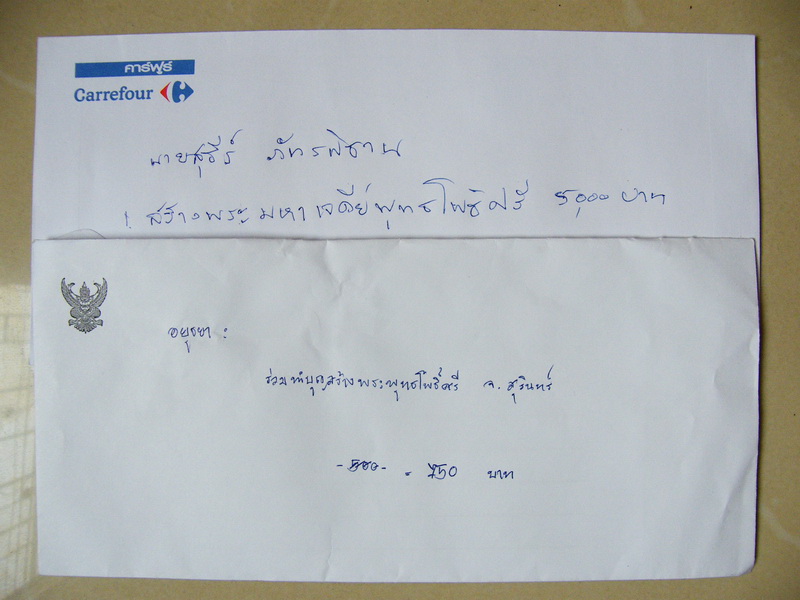 คาร์ฟูร์
Carrefour
นายสุธีร์ ภัทรพิธาน
1. สร้างพระมหาเจดีย์พุทธโพธิศรี 5,000 บาท
อยุธยา :
ร่วมทำบุญสร้างพระพุทธโพธิ์ศรี จ. สุรินทร์
750 บาท